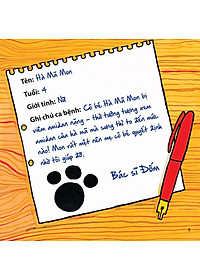 Tên: Hà Mã Mon
Tuổi: 4
Giới tính: Nữ
Ghi chú ca bệnh: Cô bé Hà Mã Mon bị
viêm amiđan nặng - thử tưởng tượng xem
amiđan của hà mã mà sưng thì to đến mức
nào! Mon rất mệt nên mẹ cô bé quyết định
nhờ tôi giúp đỡ.
Bác sĩ Đốm